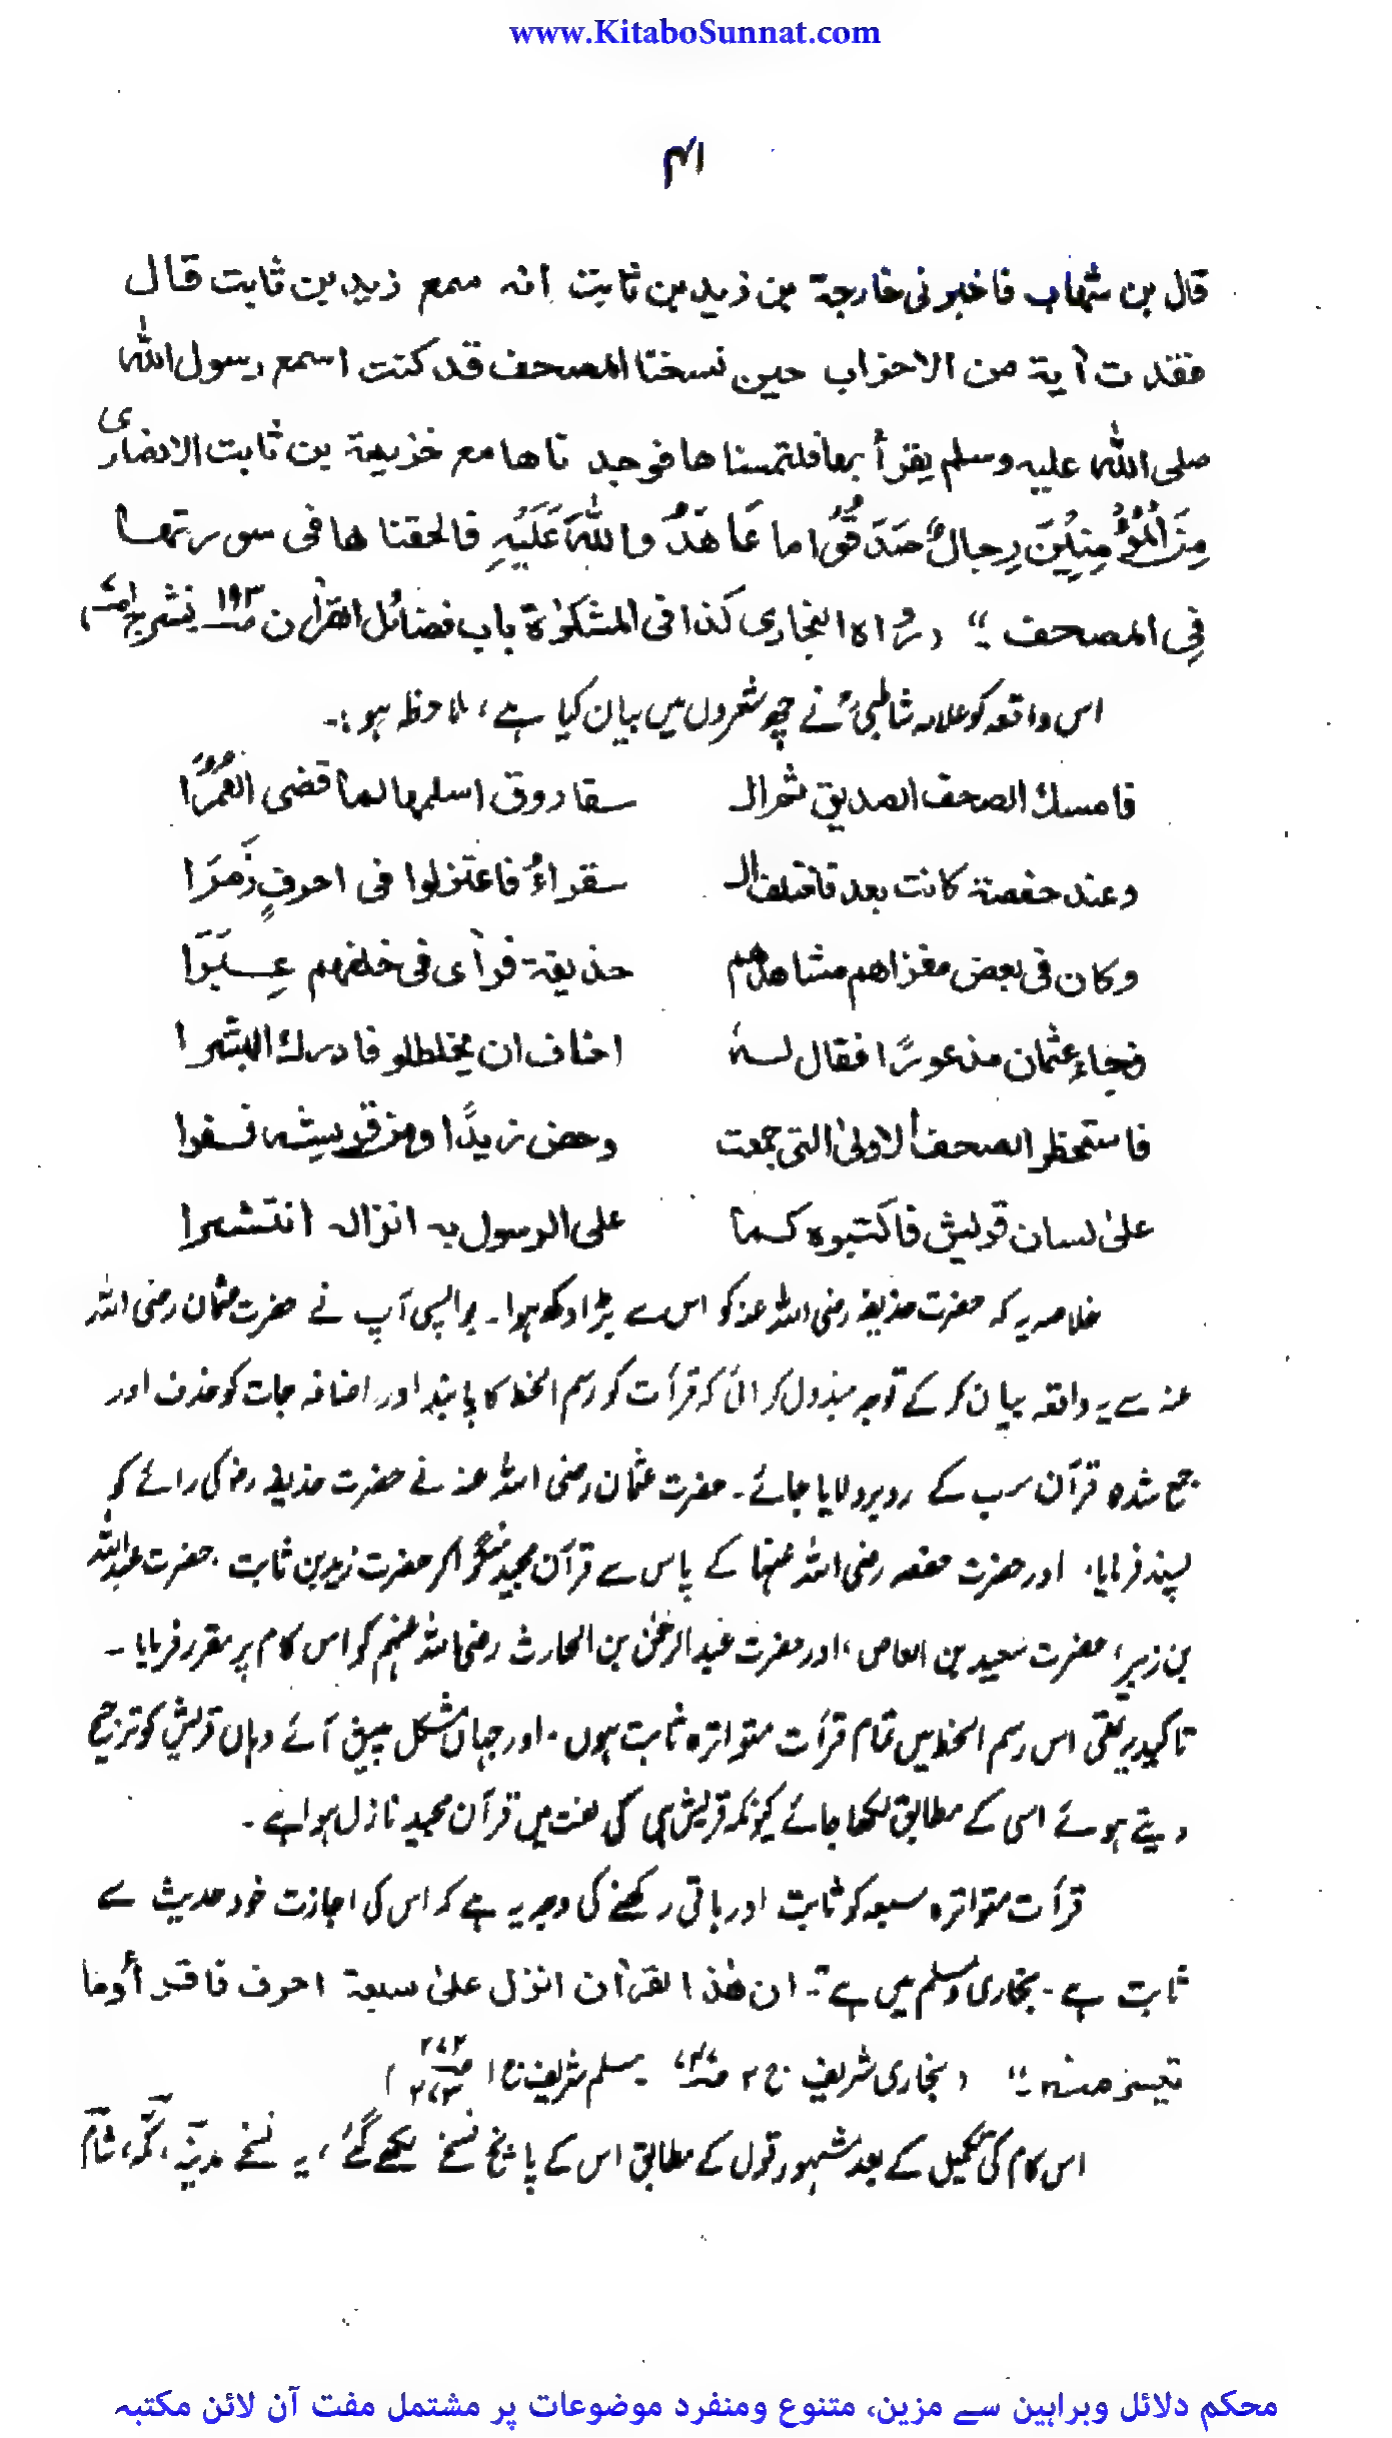 www.KitaboSunnat.com
۴۱
قال بن شهاب فاخبرنی خارجة بن زید بن ثابت انه سمع زید بن ثابت قال
فقدت آیة من الاحزاب حین نسخنا المصحف قد کنت اسمع رسول الله
صلی الله علیه وسلم یقرأ بها فالتمسناها فوجدناها مع خزیمة بن ثابت الانصاری
مِنَ الْمُؤْمِنِیْنَ رِجالٌ صَدَقُوْا ما عَاهَدُوا اللهَ عَلَیْهِ فالحقناها فی سورتها
فِی المصحف ؛“ (رواه البخاری کذا فی المشکوٰة باب فضائل القرآن ص ۱۹۳
اس واقعہ کو علامہ شاطبیؒ نے چھ شعروں میں بیان کیا ہے، ملاحظہ ہو:۔
فامسك الصحف الصدیق ثم الـ سفاروق اسلمها لما قضی العُمُرَا
وعند حفصة کانت بعد فاختلف الـ سقراءُ فاعتزلوا فی احرفٍ زُمَرَا
وکان فی بعض مغزاهم مشاهدهم حذیفة فرأی فی خلفهم عِبَرَا
فجاء عثمان مذعورًا فقال لـه اخاف ان یخلطلو فادرك البشرا
فاستحظر الصحف الاولیٰ التی جمعت وخص زیدًا ومن قریشه نفرا
علیٰ لسان قریش فاکتبوه کـما علی الرسول به انزاله انتشرا
خلاصہ یہ کہ حضرت حذیفہ رضی اللہ عنہ کو اس سے بڑا دکھ ہوا۔ بواپسی آپ نے حضرت عثمان رضی اللہ
عنہ سے یہ واقعہ بیان کر کے توجہ مبذول کرائی کہ قرأت کو رسم الخط کا پابند اور اضافہ جات کو حذف اور
جمع شدہ قرآن سب کے روبرو لایا جائے۔ حضرت عثمان رضی اللہ عنہ نے حضرت حذیفہ رض کی رائے کو
پسند فرمایا، اور حضرت حفصہ رضی اللہ عنہا کے پاس سے قرآن مجید منگوا کر حضرت زید بن ثابت، حضرت عبداللہ
بن زبیر، حضرت سعید بن العاص، اور حضرت عبدالرحمٰن بن الحارث رضی اللہ عنہم کو اس کام پر مقرر فرمایا ۔
تاکید یہ تھی اس رسم الخط میں تمام قرأت متواترہ ثابت ہوں۔ اور جہاں مشکل پیش آئے وہاں قریش کو ترجیح
دیتے ہوئے اسی کے مطابق لکھا جائے کیونکہ قریش ہی کی لغت میں قرآن مجید نازل ہوا ہے ۔
قرأت متواترہ سبعہ کو ثابت اور باقی رکھنے کی وجہ یہ ہے کہ اس کی اجازت خود حدیث سے
ثابت ہے۔ بخاری و مسلم میں ہے :۔ ان هٰذا القرآن انزل علیٰ سبعة احرف فاقرأوما
تیسر منه ؛“ (بخاری شریف ج ۲ مسلم شریف ج ۱ ص ۲۷۲ ۲۷۳)
اس کام کی تکمیل کے بعد مشہور قول کے مطابق اس کے پانچ نسخے لکھے گئے، یہ نسخے مدینہ، مکہ، شام
محکم دلائل وبراہین سے مزین، متنوع ومنفرد موضوعات پر مشتمل مفت آن لائن مکتبہ